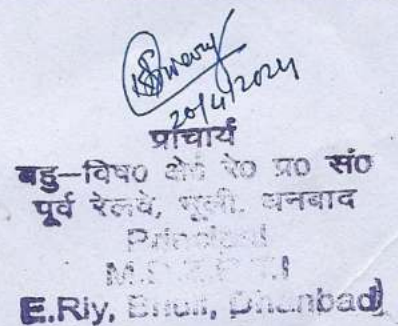 20/4/2024
प्राचार्य
बहु–विष० क्षे० रे० प्र० सं०
पूर्व रेलवे, भूली. धनबाद
Principal
E.Rly, Bhuli, Dhanbad